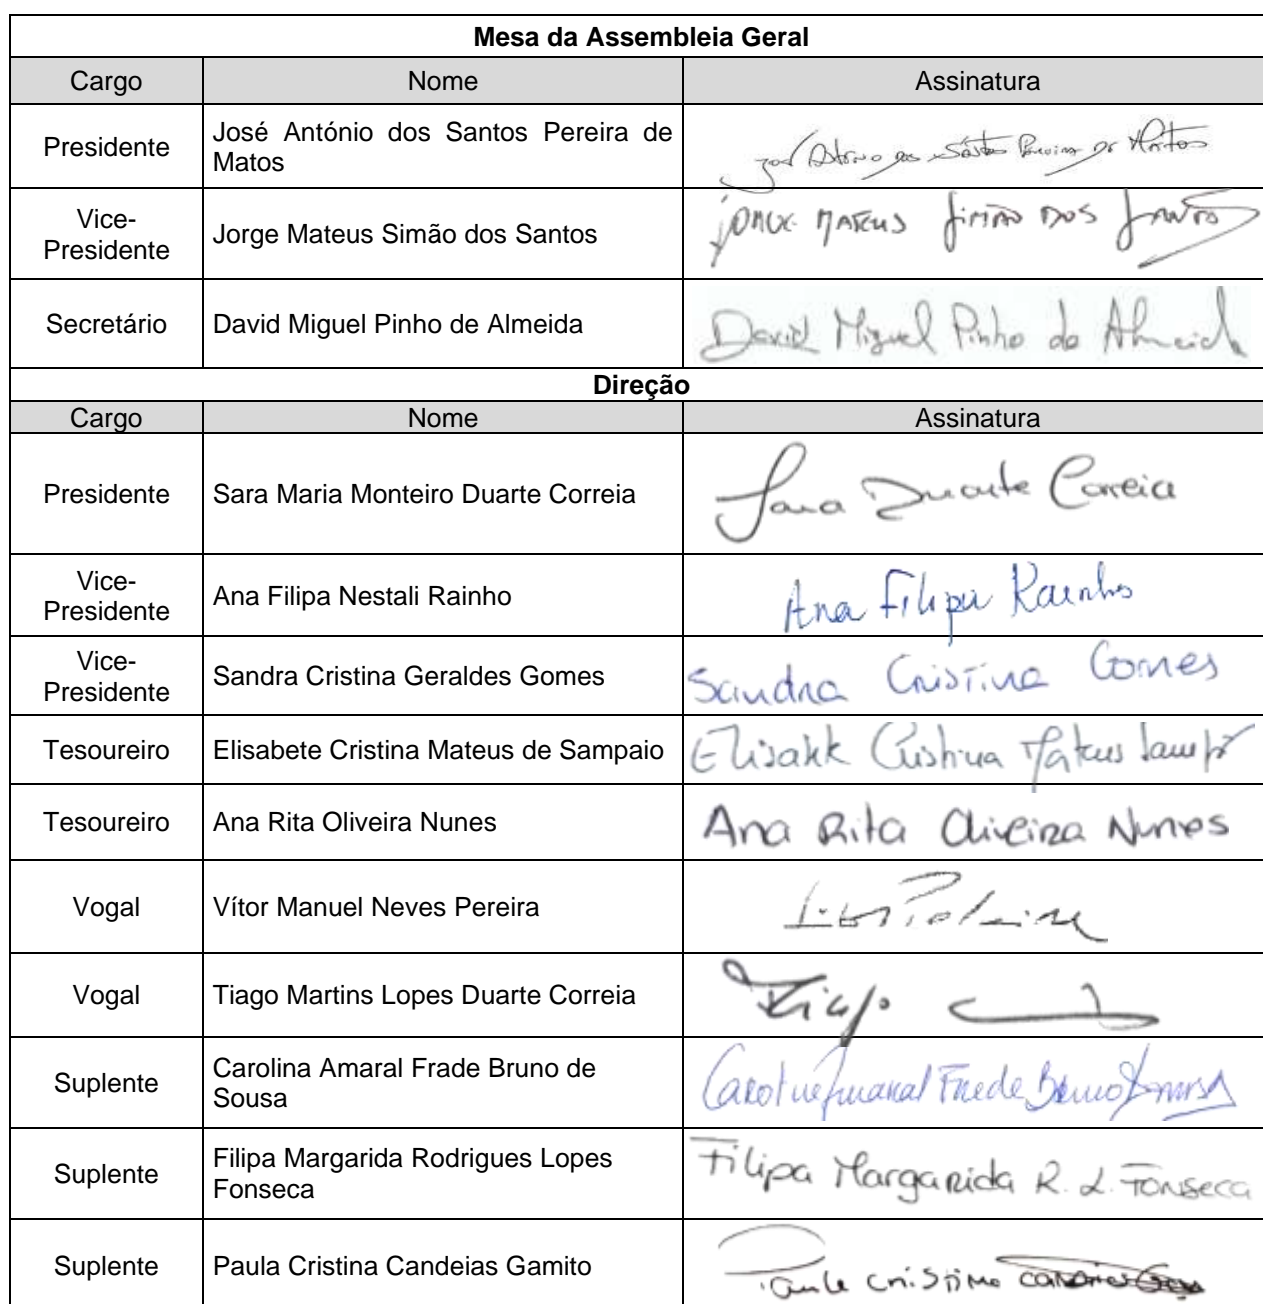 Mesa da Assembleia Geral
Cargo Nome Assinatura
Presidente José António dos Santos Pereira de
Matos José António dos Santos Pereira de Matos
Vice-
Presidente Jorge Mateus Simão dos Santos JORGE MATEUS SIMÃO DOS SANTOS
Secretário David Miguel Pinho de Almeida David Miguel Pinho de Almeida
Direção
Cargo Nome Assinatura
Presidente Sara Maria Monteiro Duarte Correia Sara Duarte Correia
Vice-
Presidente Ana Filipa Nestali Rainho Ana Filipa Rainho
Vice-
Presidente Sandra Cristina Geraldes Gomes Sandra Cristina Gomes
Tesoureiro Elisabete Cristina Mateus de Sampaio Elisabete Cristina Mateus Sampaio
Tesoureiro Ana Rita Oliveira Nunes Ana Rita Oliveira Nunes
Vogal Vítor Manuel Neves Pereira
Vogal Tiago Martins Lopes Duarte Correia Tiago
Suplente Carolina Amaral Frade Bruno de
Sousa Carolina Amaral Frade Bruno Sousa
Suplente Filipa Margarida Rodrigues Lopes
Fonseca Filipa Margarida R. L. Fonseca
Suplente Paula Cristina Candeias Gamito Paula Cristina